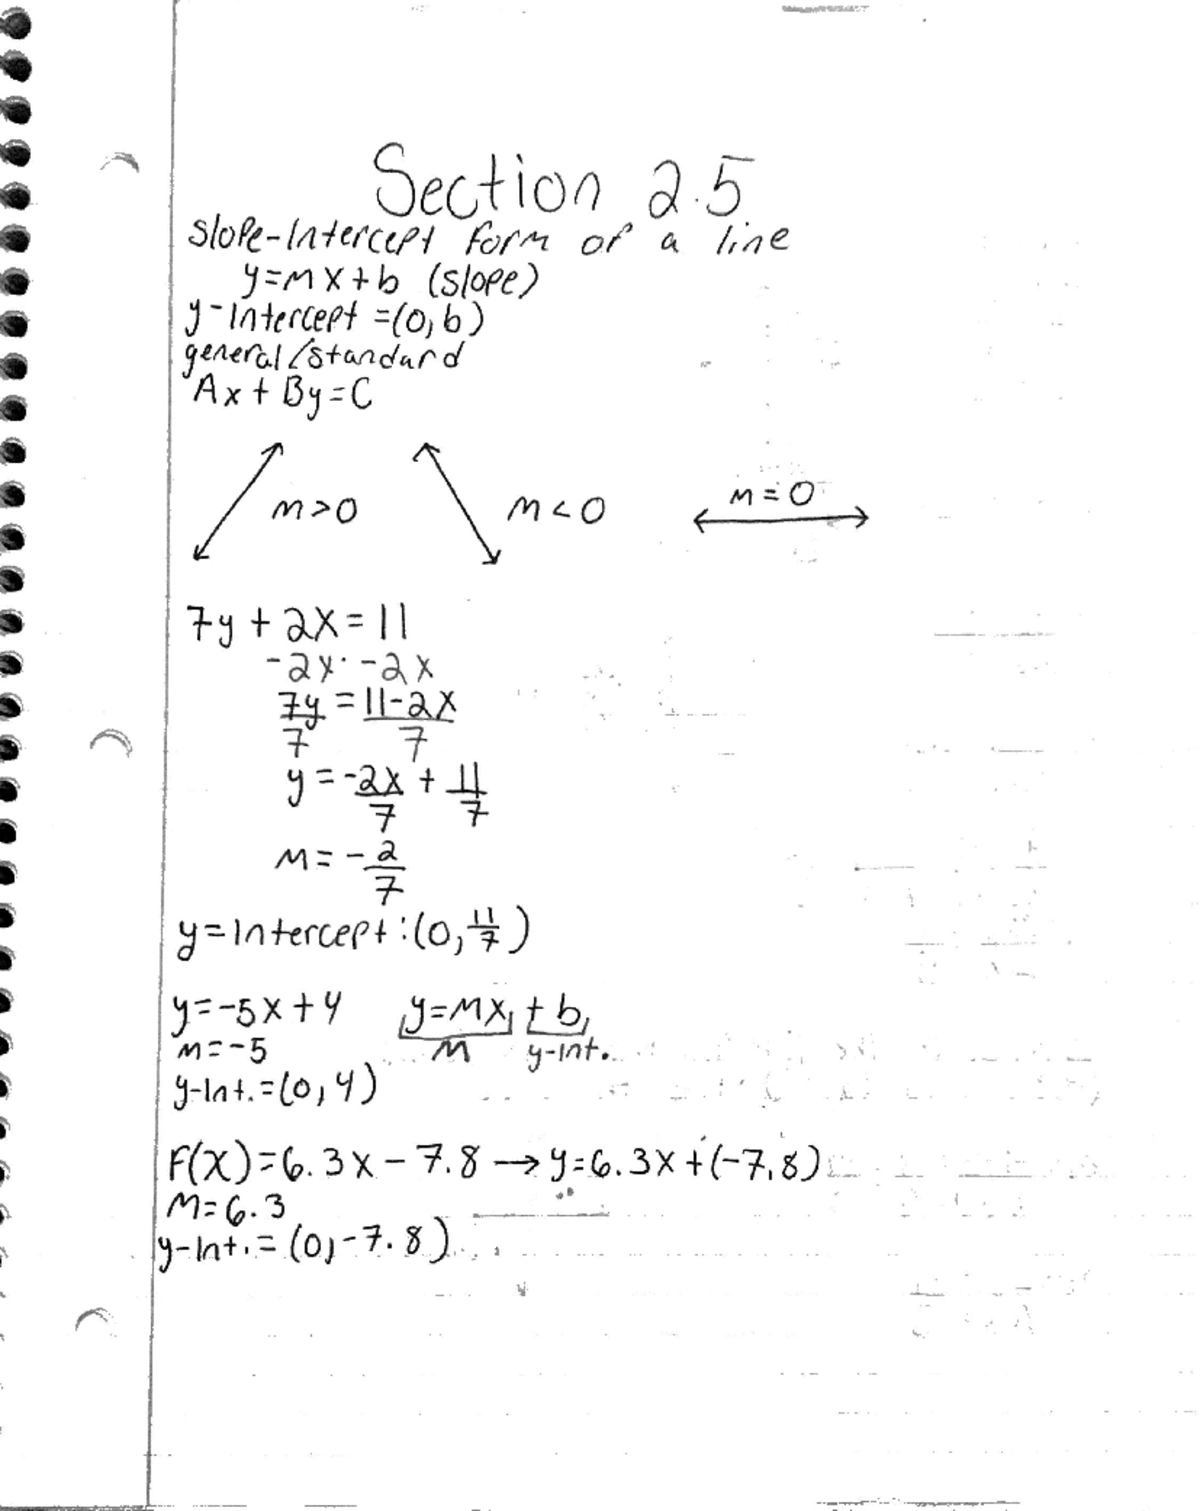 Section 2.5
Slope-Intercept form of a line
y=mx+b (slope)
y-Intercept =(0,b)
general/standard
Ax + By=C
m>0 m<0 m=0
7y + 2x = 11
-2x -2x
7y = 11-2x
7 7
y = -2x + 11
7 7
m = - 2
7
y=Intercept:(0, 11/7)
y=-5x+4 y=mx + b
m=-5 m y-int.
y-Int.=(0,4)
F(x)=6.3x-7.8 → y=6.3x+(-7.8)
m=6.3
y-Int.= (0,-7.8)